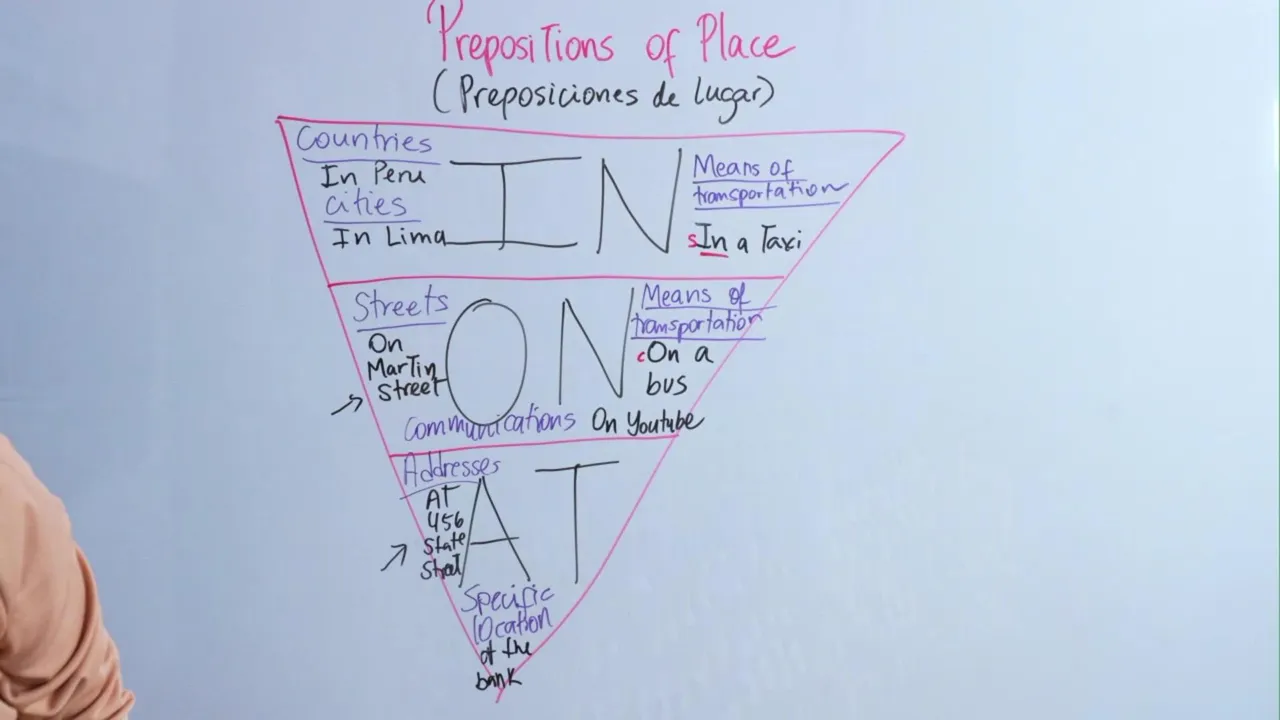 Prepositions of Place
(Preposiciones de lugar)
Countries
In Peru
cities
In Lima
IN
Means of
transportation
sIn a Taxi
Streets
On
Martin
Street
ON
Means of
transportation
cOn a
bus
Communications On Youtube
Addresses
AT
456
State
Street
AT
Specific
location
at the
bank